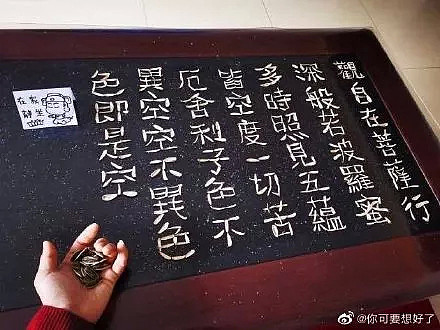 觀自在菩薩行
深般若波羅蜜
多時照見五蘊
皆空度一切苦
厄舍利子色不
異空空不異色
色即是空
@你可要想好了